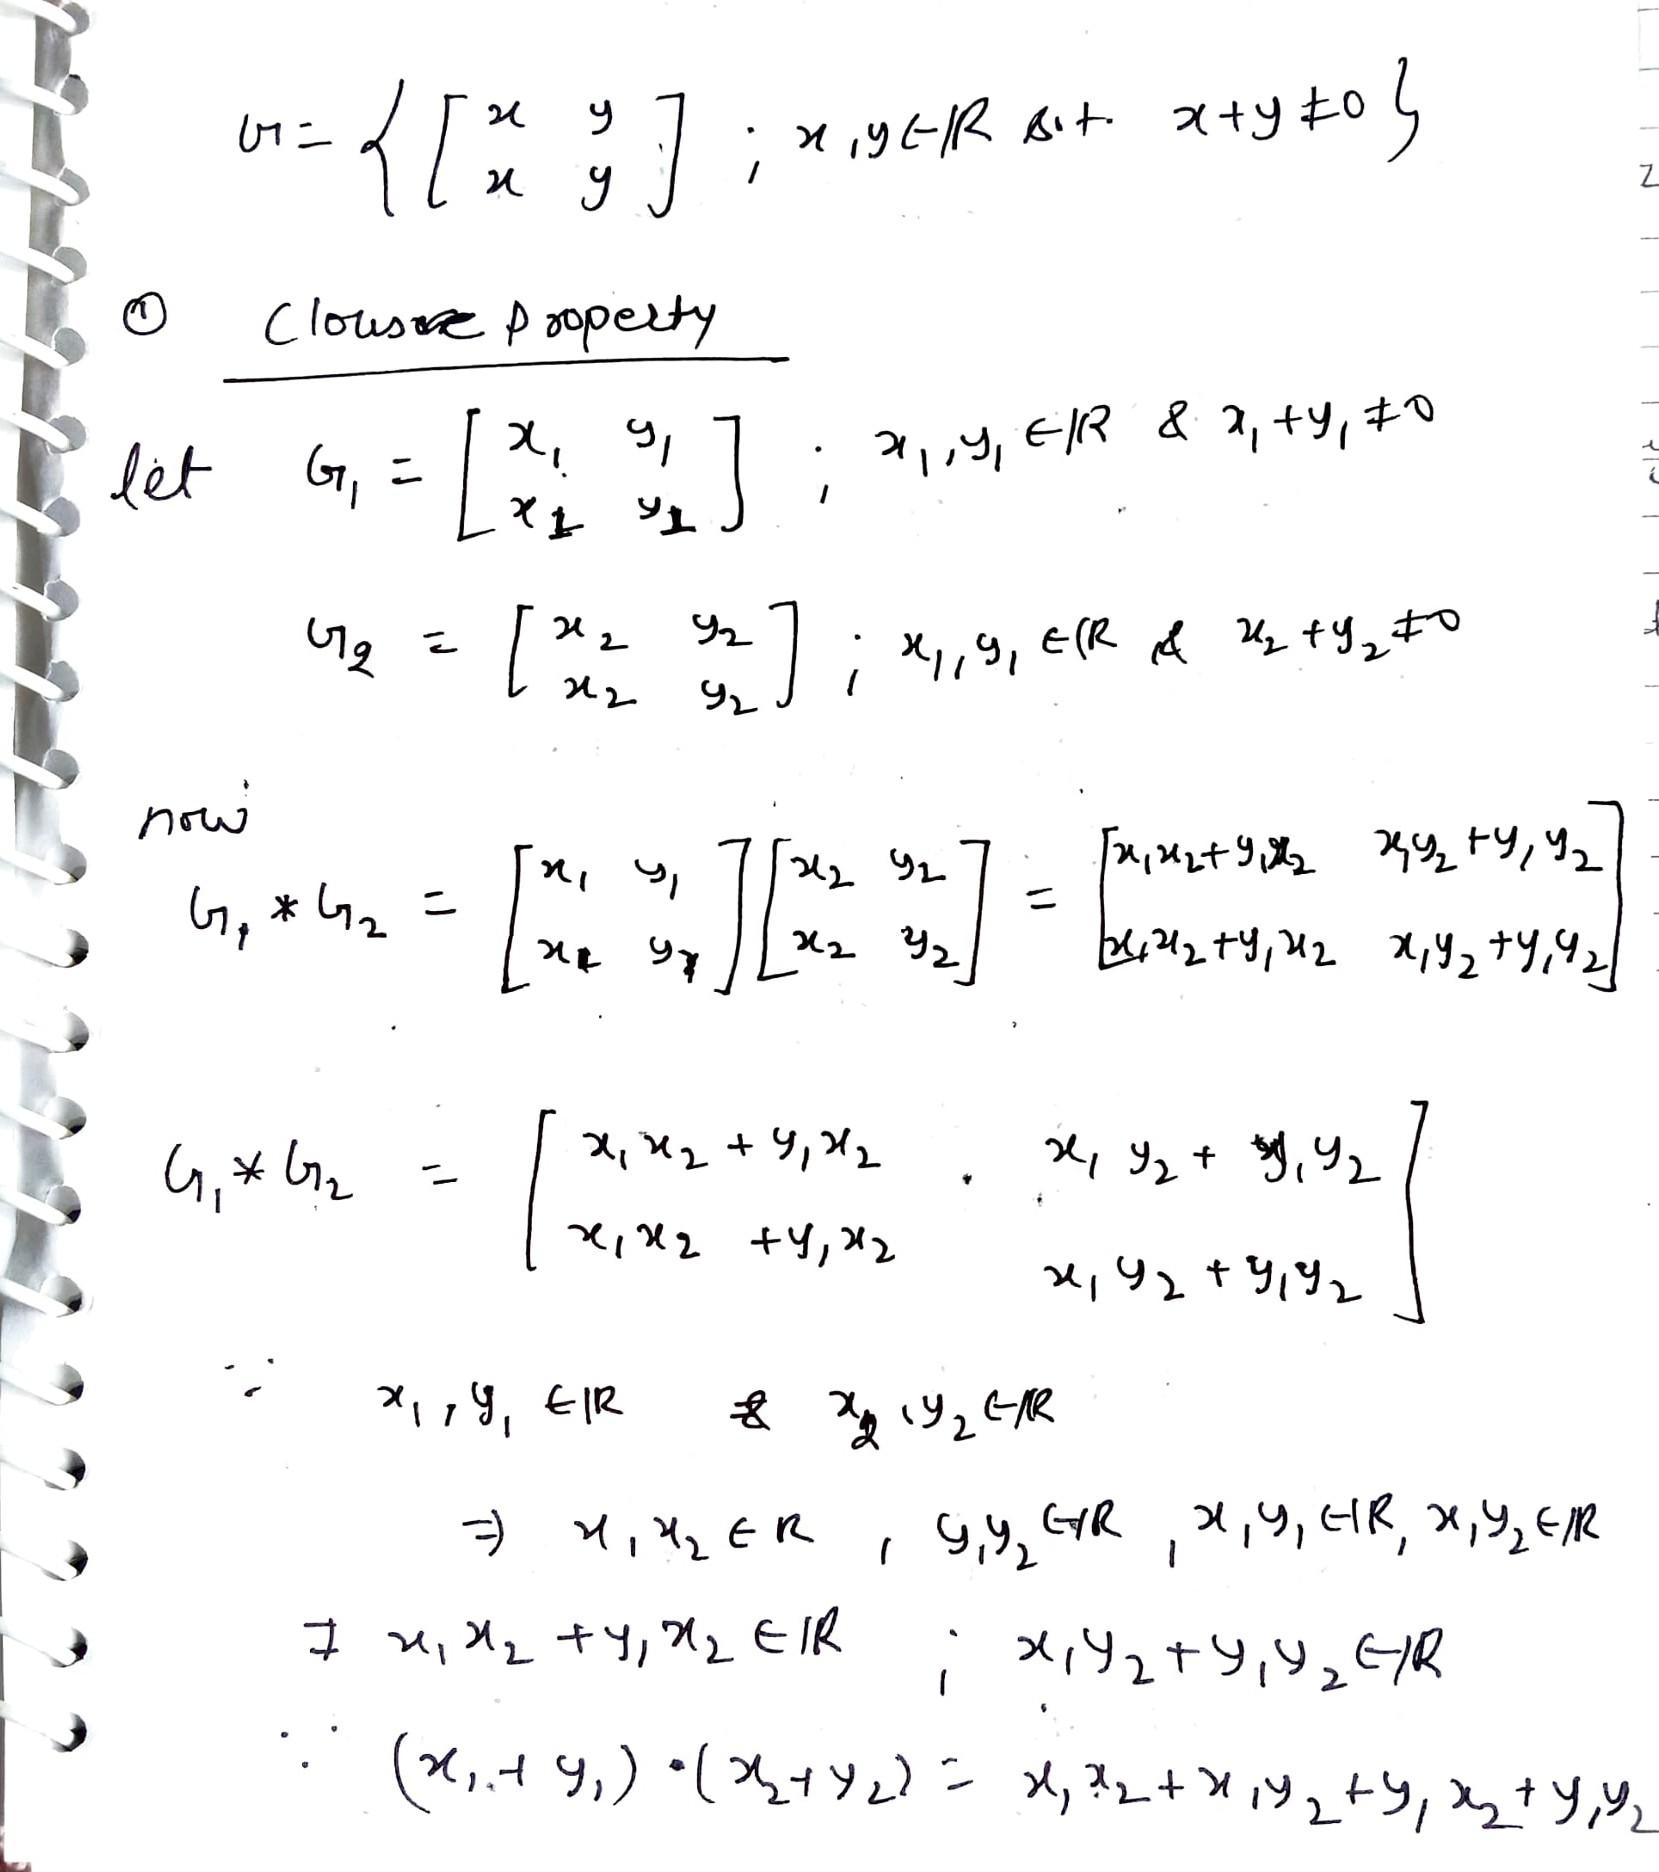 G = { [ x y ; x y ] ; x, y ∈ ℝ s.t. x+y ≠ 0 }
① Clousre property
let G₁ = [ x₁ y₁ ; x₁ y₁ ] ; x₁, y₁ ∈ ℝ & x₁+y₁ ≠ 0
G₂ = [ x₂ y₂ ; x₂ y₂ ] ; x₁, y₁ ∈ ℝ & x₂+y₂ ≠ 0
now
G₁ * G₂ = [ x₁ y₁ ; x₁ y₁ ] [ x₂ y₂ ; x₂ y₂ ] = [ x₁x₂+y₁x₂ x₁y₂+y₁y₂ ; x₁x₂+y₁x₂ x₁y₂+y₁y₂ ]
G₁ * G₂ = [ x₁x₂+y₁x₂ x₁y₂+y₁y₂ ; x₁x₂+y₁x₂ x₁y₂+y₁y₂ ]
∵ x₁, y₁ ∈ ℝ & x₂, y₂ ∈ ℝ
⇒ x₁x₂ ∈ R , y₁y₂ ∈ ℝ , x₁y₁ ∈ ℝ, x₁y₂ ∈ ℝ
⇒ x₁x₂+y₁x₂ ∈ ℝ ; x₁y₂+y₁y₂ ∈ ℝ
∵ (x₁+y₁)•(x₂+y₂) = x₁x₂+x₁y₂+y₁x₂+y₁y₂